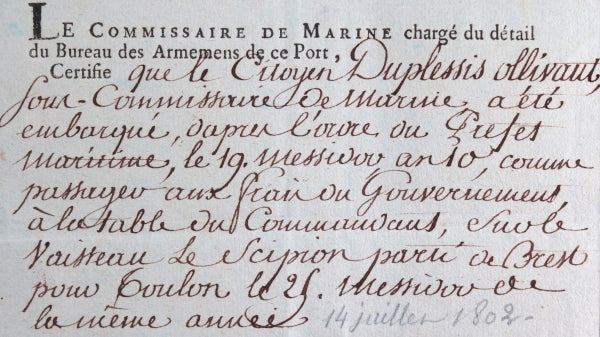 LE COMMISSAIRE DE MARINE chargé du détail
du Bureau des Armemens de ce Port,
Certifie que le Citoyen Duplessis ollivault,
Sous-Commissaire de Marine, a été
embarqué, dapres l'ordre du Prefet
maritime, le 19. messidor an 10, comme
passager aux frais du Gouvernement,
à la table du Commandant, Sur le
Vaisseau Le Scipion parti de Brest
pour Toulon le 25. messidor de
la même année 14 juillet 1802-